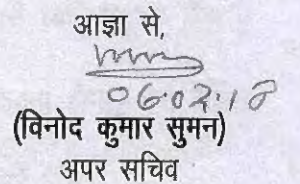 आज्ञा से,
06.02.18
(विनोद कुमार सुमन)
अपर सचिव